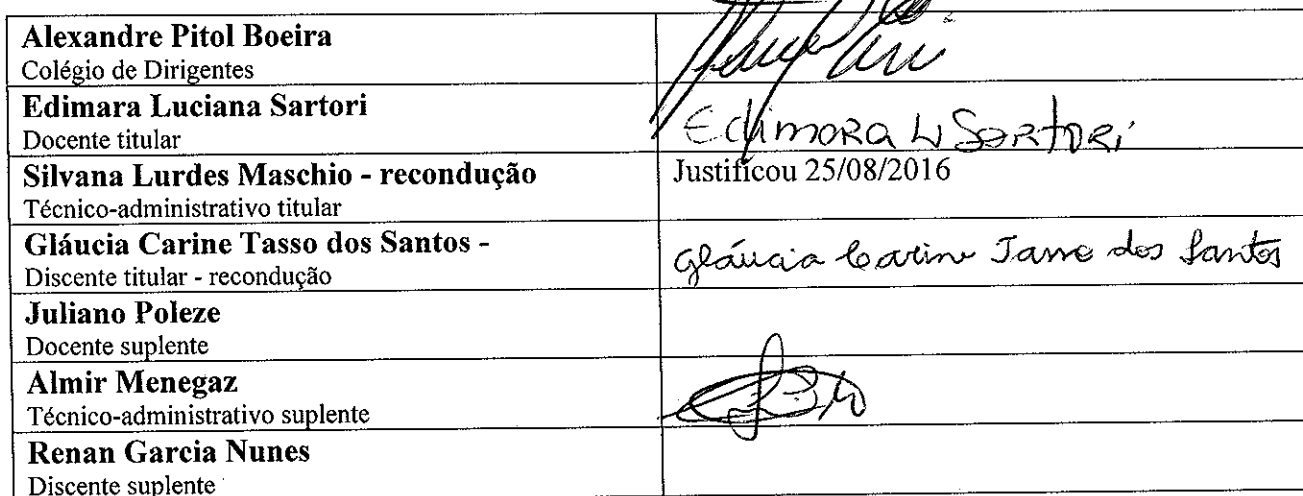 Alexandre Pitol Boeira
Colégio de Dirigentes
Edimara Luciana Sartori
Docente titular
Edimara L Sartori
Silvana Lurdes Maschio - recondução
Justificou 25/08/2016
Técnico-administrativo titular
Gláucia Carine Tasso dos Santos -
Gláucia Carine Tasso dos Santos
Discente titular - recondução
Juliano Poleze
Docente suplente
Almir Menegaz
Técnico-administrativo suplente
Renan Garcia Nunes
Discente suplente